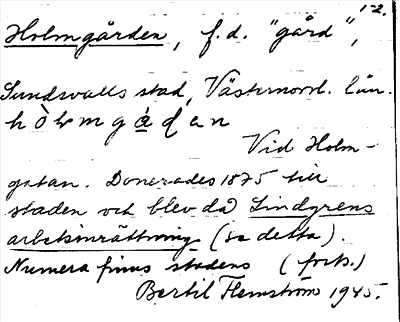 1-2.
Holmgården, f.d. "gård",
Sundsvalls stad, Västernorrl. län.
hòlmga̱dan
Vid Holm-
gatan. Donerades 1875 till
staden och blev då Lindgrens
arbetsinrättning (se detta).
Numera finns stadens (forts.)
Bertil Flemström 1945.